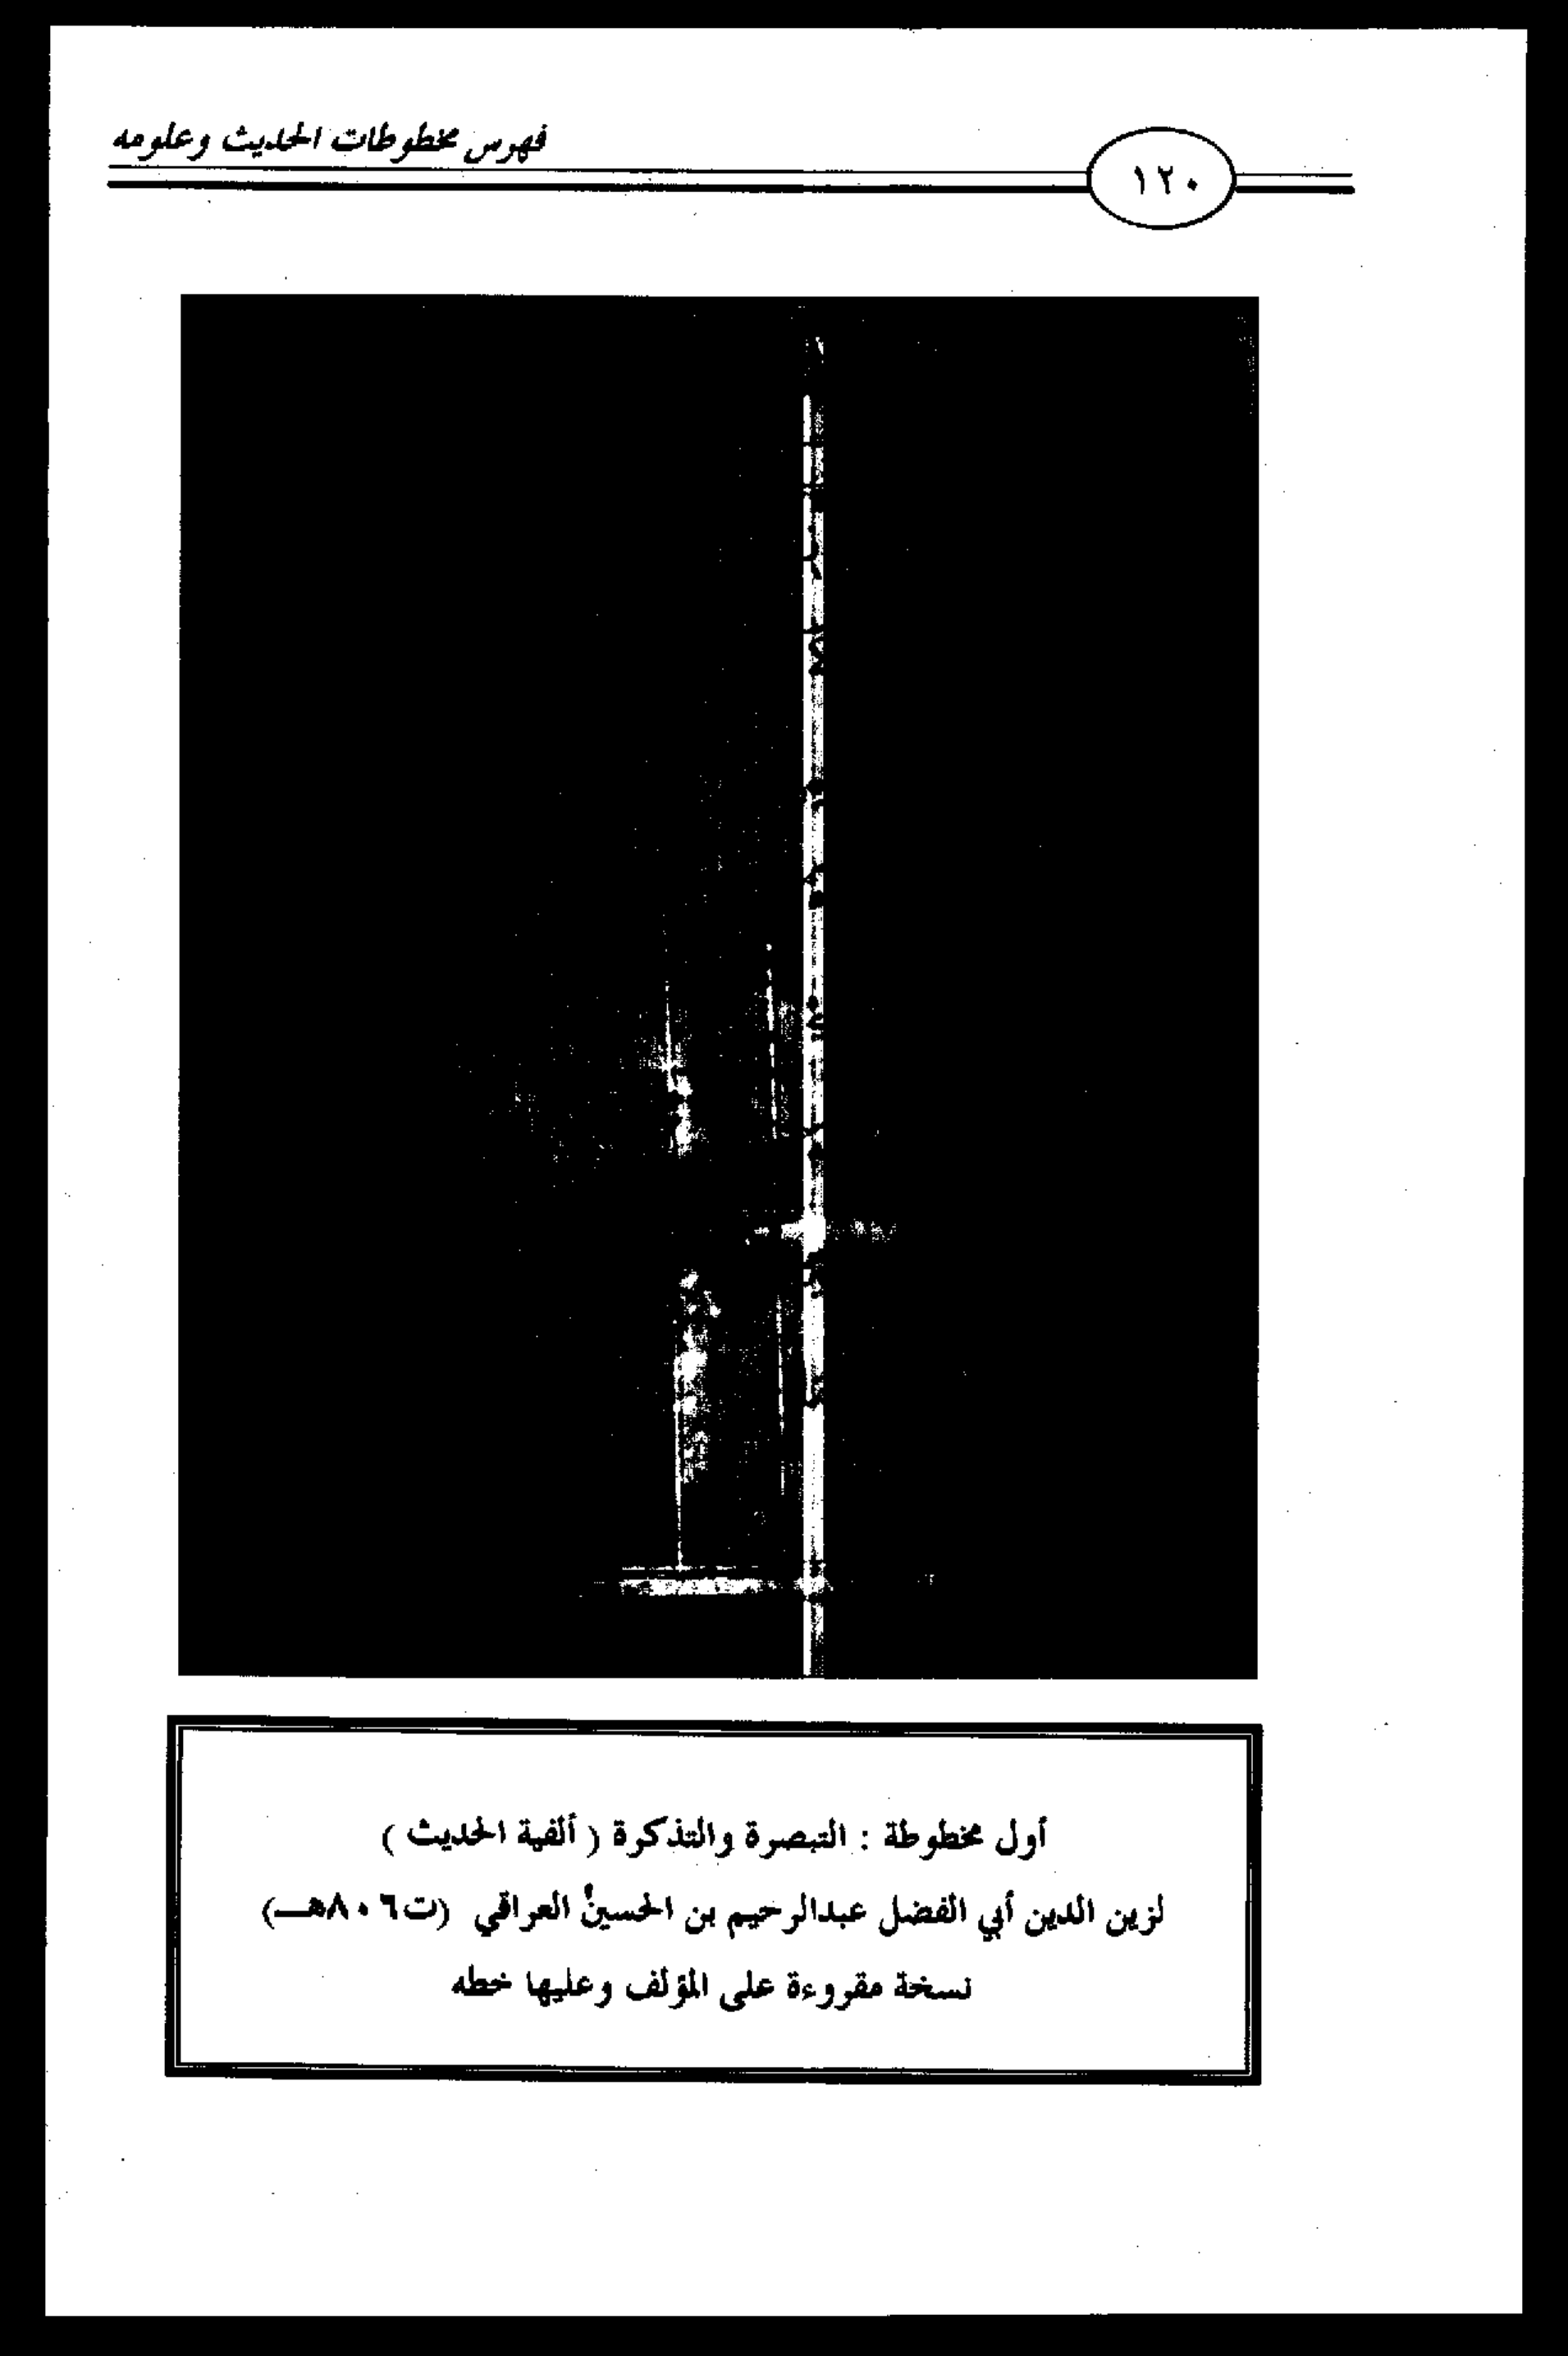 ١٢٠
فهرس مخطوطات الحديث وعلومه
أول مخطوطة : التبصرة والتذكرة ( ألفية الحديث )
لزين الدين أبي الفضل عبدالرحيم بن الحسين العراقي (ت٨٠٦هـ)
نسخة مقروءة على المؤلف وعليها خطه